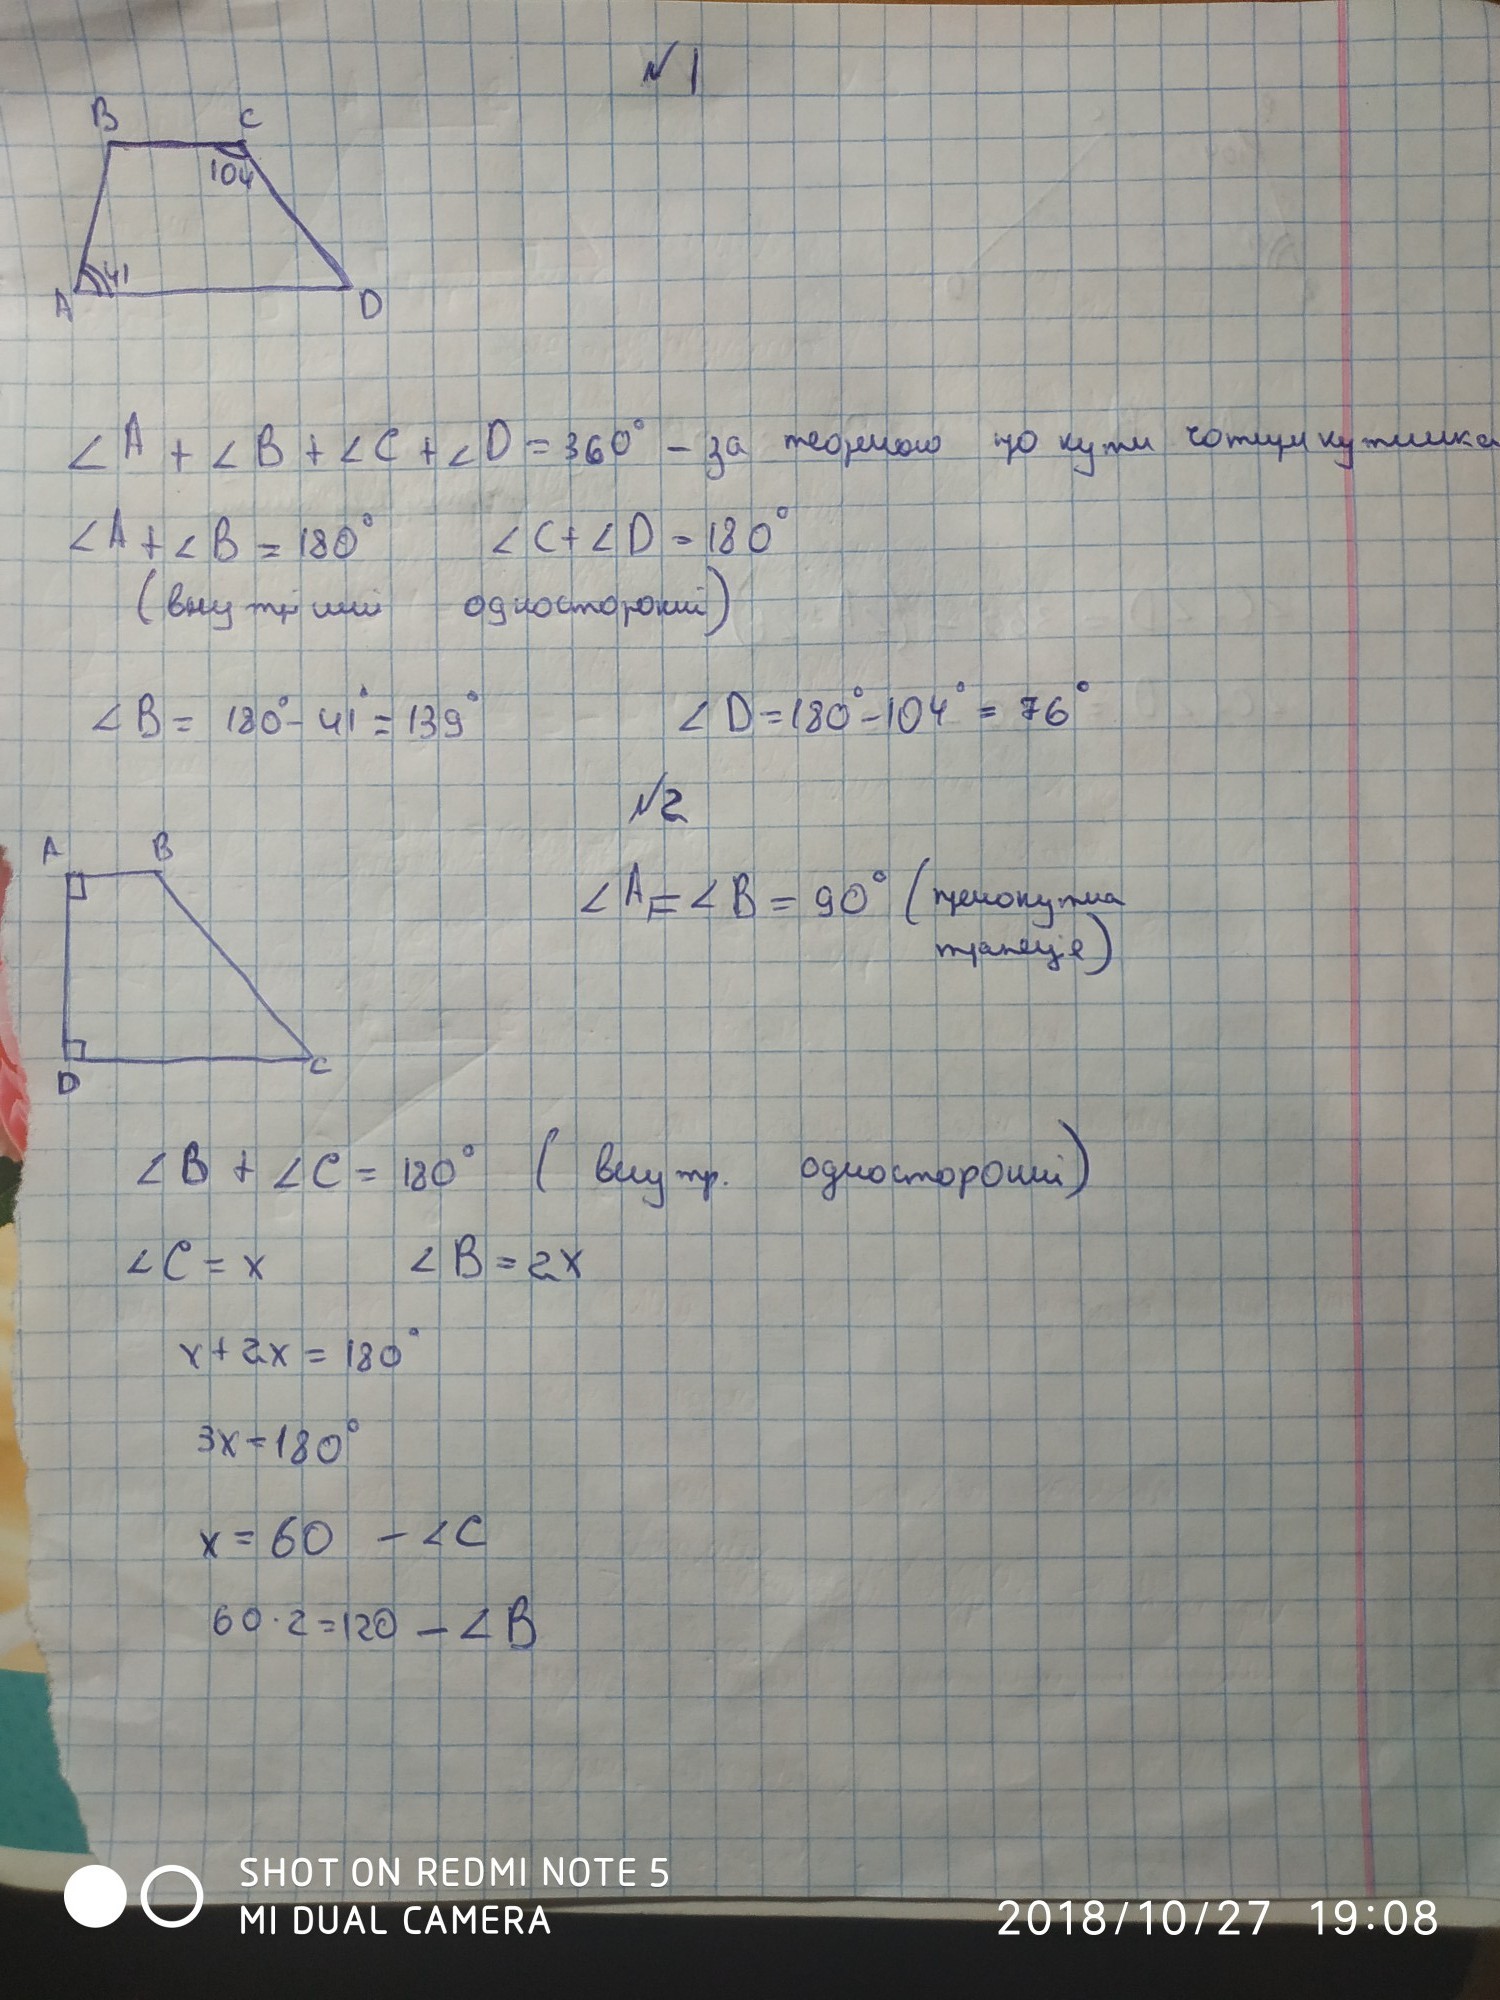 №1
B C
104
41
A D
∠A + ∠B + ∠C + ∠D = 360° – за теоремою про кути чотирикутника
∠A + ∠B = 180° ∠C + ∠D = 180°
(внутрішні односторонні)
∠B = 180° - 41° = 139° ∠D = 180° - 104° = 76°
№2
A B
∠A = ∠B = 90° (прямокутна
трапеція)
D C
∠B + ∠C = 180° (внутр. односторонні)
∠C = x ∠B = 2x
x + 2x = 180°
3x = 180°
x = 60 – ∠C
60 · 2 = 120 – ∠B
SHOT ON REDMI NOTE 5
MI DUAL CAMERA
2018/10/27 19:08